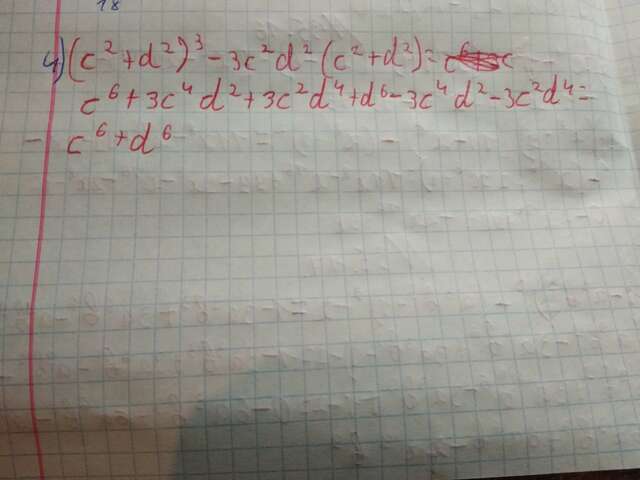 18
4) (c² + d²)³ - 3c²d² (c² + d²) =
c⁶ + 3c⁴d² + 3c²d⁴ + d⁶ - 3c⁴d² - 3c²d⁴ =
- c⁶ + d⁶